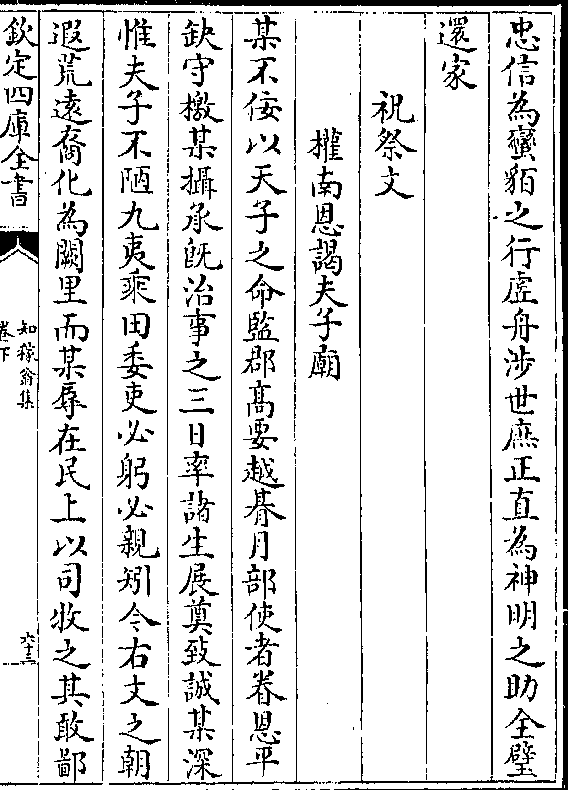 忠信為蠻貊之行虛舟涉世庶正直為神明之助全璧
還家
祝祭文
權南恩謁夫子廟
某不佞以天子之命監郡髙要越朞月部使者眷恩平
缺守檄某攝承旣治事之三日率諸生展奠致誠某深
惟夫子不陋九夷乘田委吏必躬必親矧今右文之朝
遐荒遠裔化為闕里而某辱在民上以司牧之其敢鄙
欽定四庫全書
知稼翁集
卷下
六十三